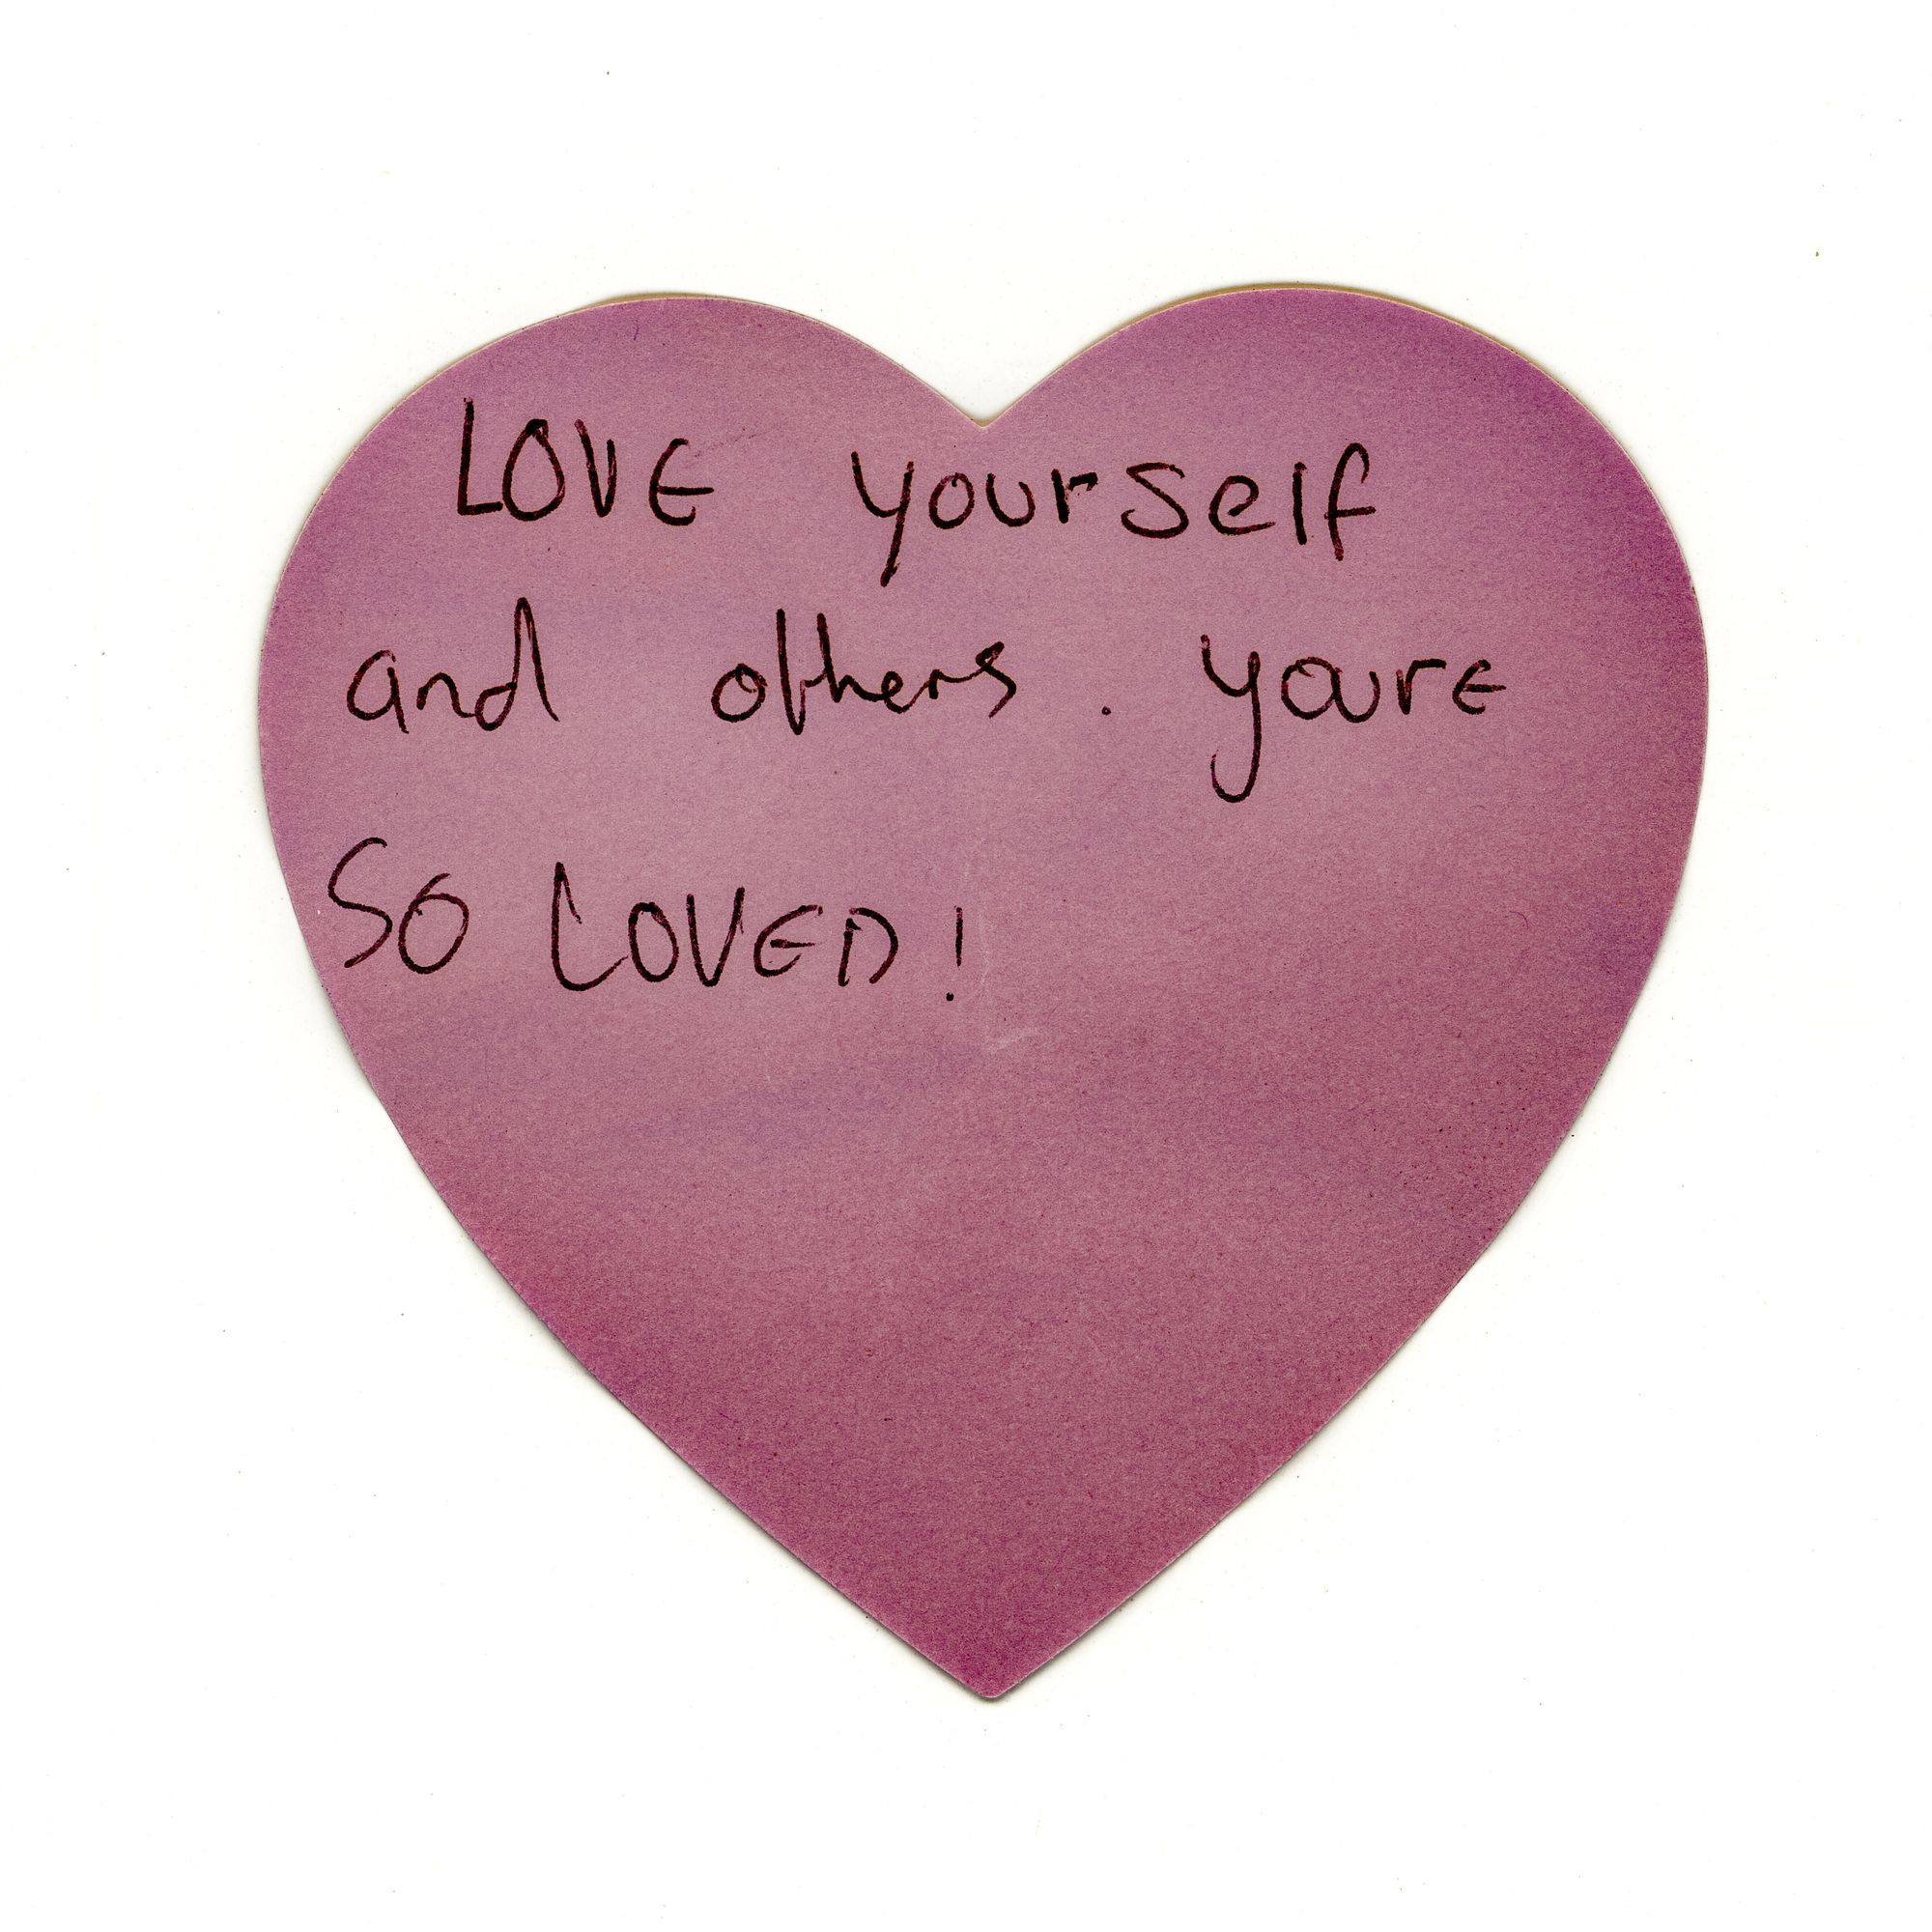 LOVE yourself
and others. youre
SO LOVED!